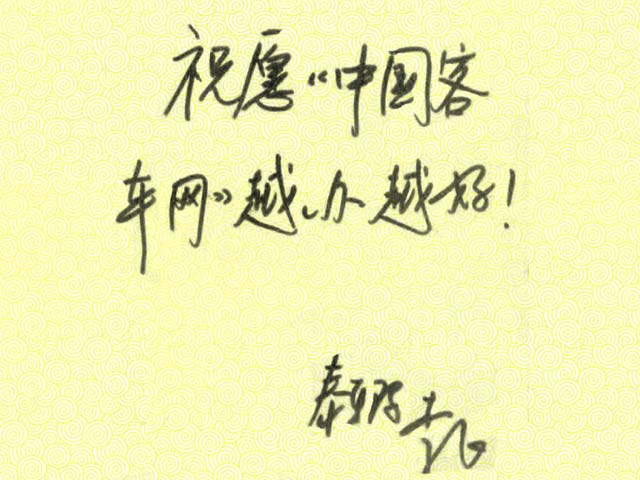 祝愿《中国客
车网》越办越好!